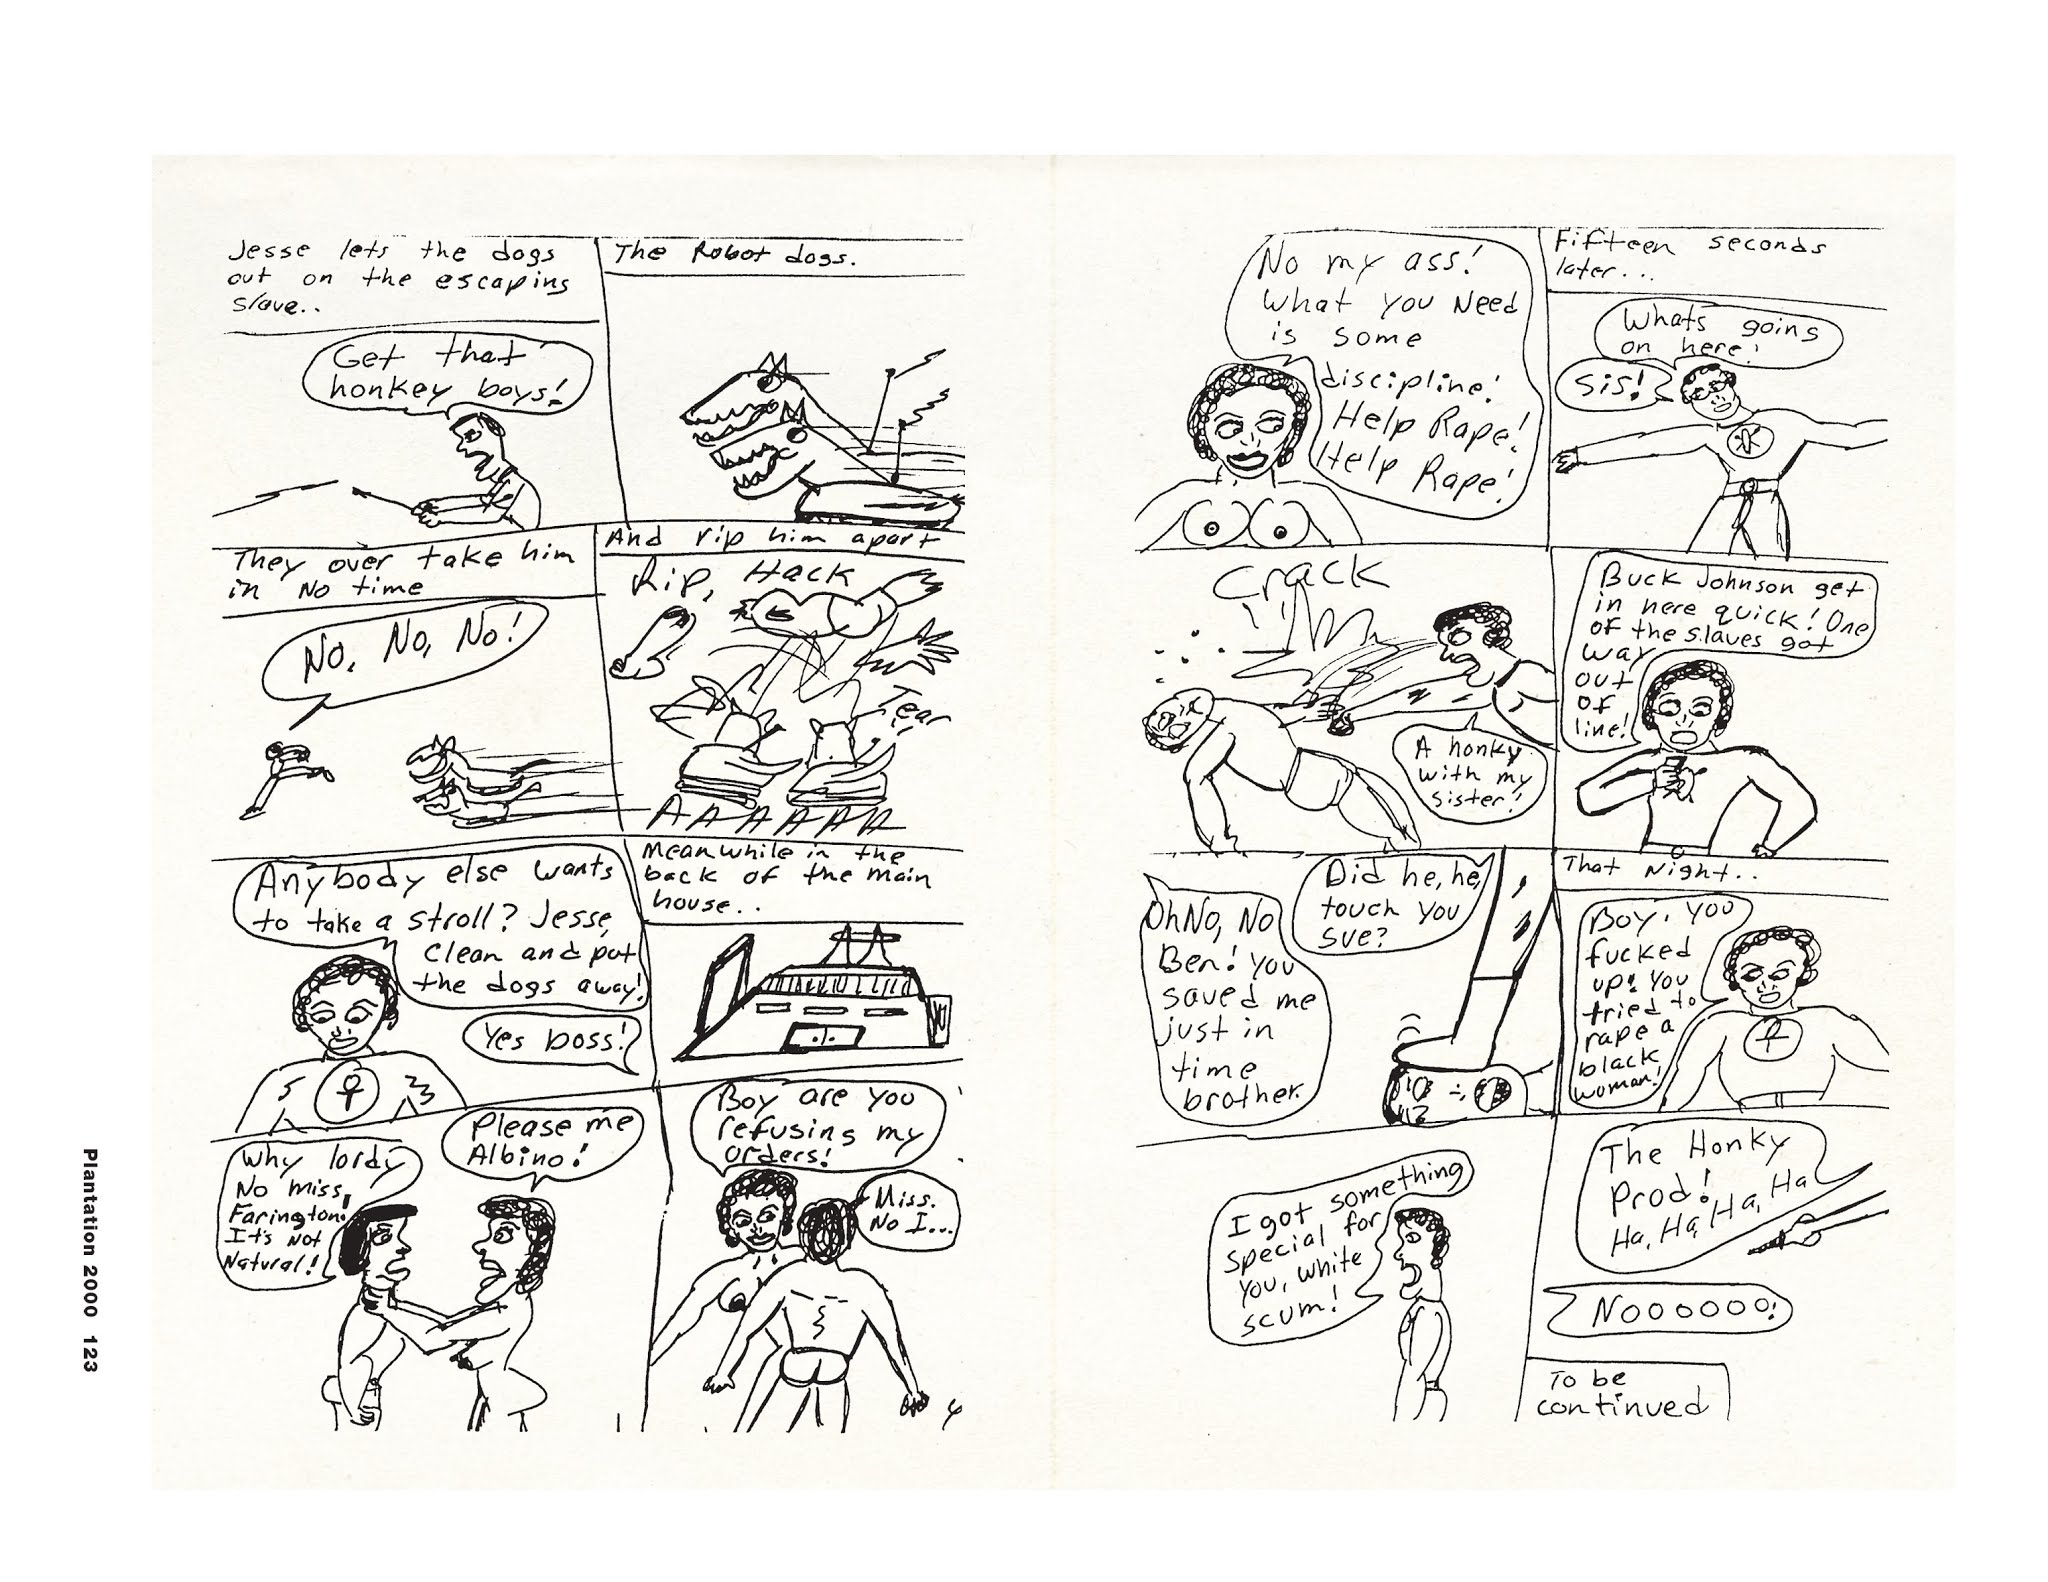 Jesse lets the dogs
out on the escaping
slave..
Get that
honkey boys!
The Robot dogs.
They over take him
in No time
No, No, No!
And rip him apart
Rip, Hack
Tear
AAAAAAA
Anybody else wants
to take a stroll? Jesse,
clean and put
the dogs away!
Yes boss!
Meanwhile in the
back of the main
house..
Please me
Albino!
Why lordy
No miss,
Farington!
It's Not
Natural!
Boy are you
refusing my
orders!
Miss.
No I...
4
No my ass!
What you Need
is some
discipline!
Help Rape!
Help Rape!
Fifteen seconds
later...
Whats going
on here!
Sis!
Crack
A honky
with my
sister!
Buck Johnson get
in here quick! One
of the slaves got
way
out
of
line!
OhNo, No
Ben! You
saved me
just in
time
brother.
Did he, he,
touch you
Sue?
That Night..
Boy, you
fucked
up! You
tried to
rape a
black
woman!
I got something
special for
you, white
scum!
The Honky
Prod!
Ha, Ha, Ha, Ha
Noooooo!
To be
continued
Plantation 2000 123